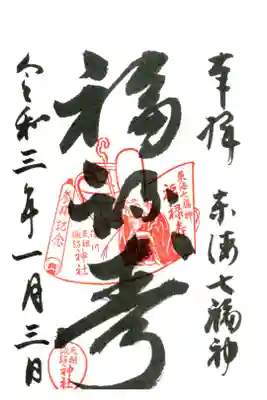 奉拝　東海七福神
福禄寿
令和三年一月三日
東海七福神
福禄寿
参拝記念
天祖
諏訪
神社
天祖
諏訪
神社